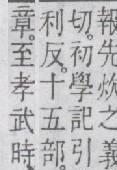 報先炊之義
切。初學記引
利反。十五部。
章。至孝武時